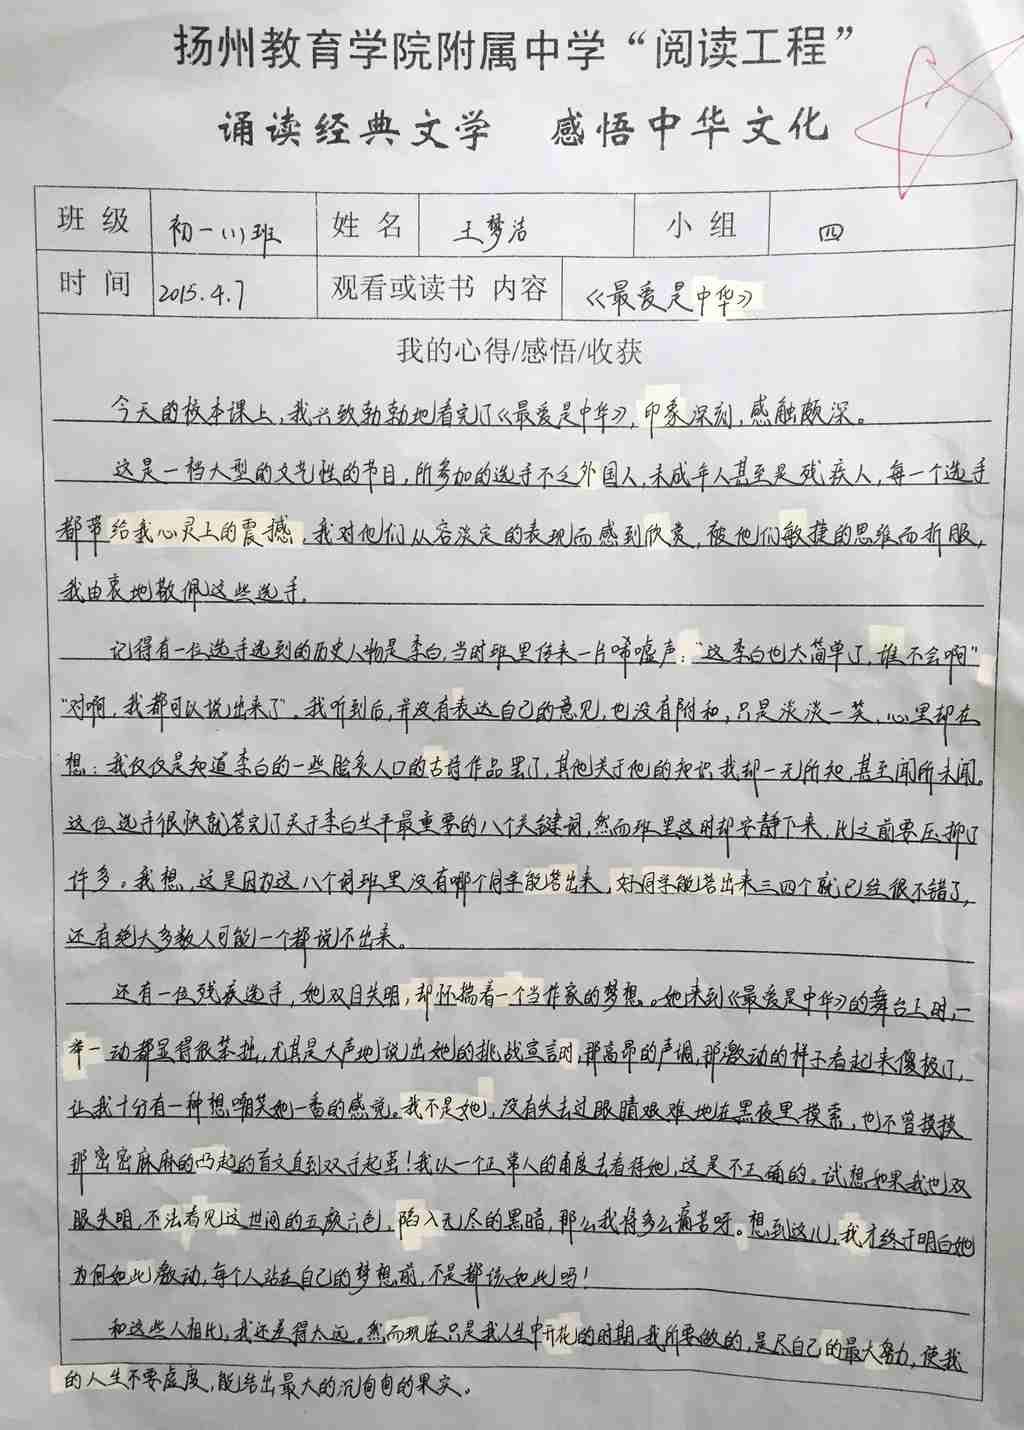 扬州教育学院附属中学“阅读工程”
诵读经典文学 感悟中华文化
班 级 初一(1)班 姓 名 王梦洁 小 组 四
时 间 2015.4.7 观看或读书 内容 《最爱是中华》
我的心得/感悟/收获
今天的校本课上,我兴致勃勃地看完了《最爱是中华》,印象深刻,感触颇深。
这是一档大型的文艺性的节目,所参加的选手不乏外国人,未成年人甚至是残疾人,每一个选手
都带给我心灵上的震撼,我对他们从容淡定的表现而感到欣赏,被他们敏捷的思维而折服,
我由衷地敬佩这些选手。
记得有一位选手选到的历史人物是李白,当时班里传来一片唏嘘声:“这李白也太简单了,谁不会啊”
“对啊,我都可以说出来了”。我听到后,并没有表达自己的意见,也没有附和,只是淡淡一笑,心里却在
想:我仅仅是知道李白的一些脍炙人口的古诗作品罢了,其他关于他的知识我却一无所知,甚至闻所未闻。
这位选手很快就答完了关于李白生平最重要的八个关键词,然而班里这时却安静下来,比之前要压抑了
许多。我想,这是因为这八个词班里没有哪个同学能答出来,好同学能答出来三四个就已经很不错了,
还有绝大多数人可能一个都说不出来。
还有一位残疾选手,她双目失明,却怀揣着一个当作家的梦想。她来到《最爱是中华》的舞台上时,一
举一动都显得很笨拙,尤其是大声地说出她的挑战宣言时,那高昂的声调,那激动的样子看起来傻极了,
让我十分有一种想嘲笑她一番的感觉。我不是她,没有失去过眼睛艰难地在黑夜里摸索,也不曾摸摸
那密密麻麻的凸起的盲文直到双手起茧!我以一个正常人的角度去看待她,这是不正确的。试想如果我也双
眼失明,不法看见这世间的五颜六色,陷入无尽的黑暗,那么我将多么痛苦呀。想到这儿,我才终于明白她
为何如此激动,每个人站在自己的梦想前,不是都该如此吗!
和这些人相比,我还差得太远。然而现在只是我人生中开花的时期,我所要做的,是尽自己的最大努力,使我
的人生不要虚度,能结出最大的沉甸甸的果实。